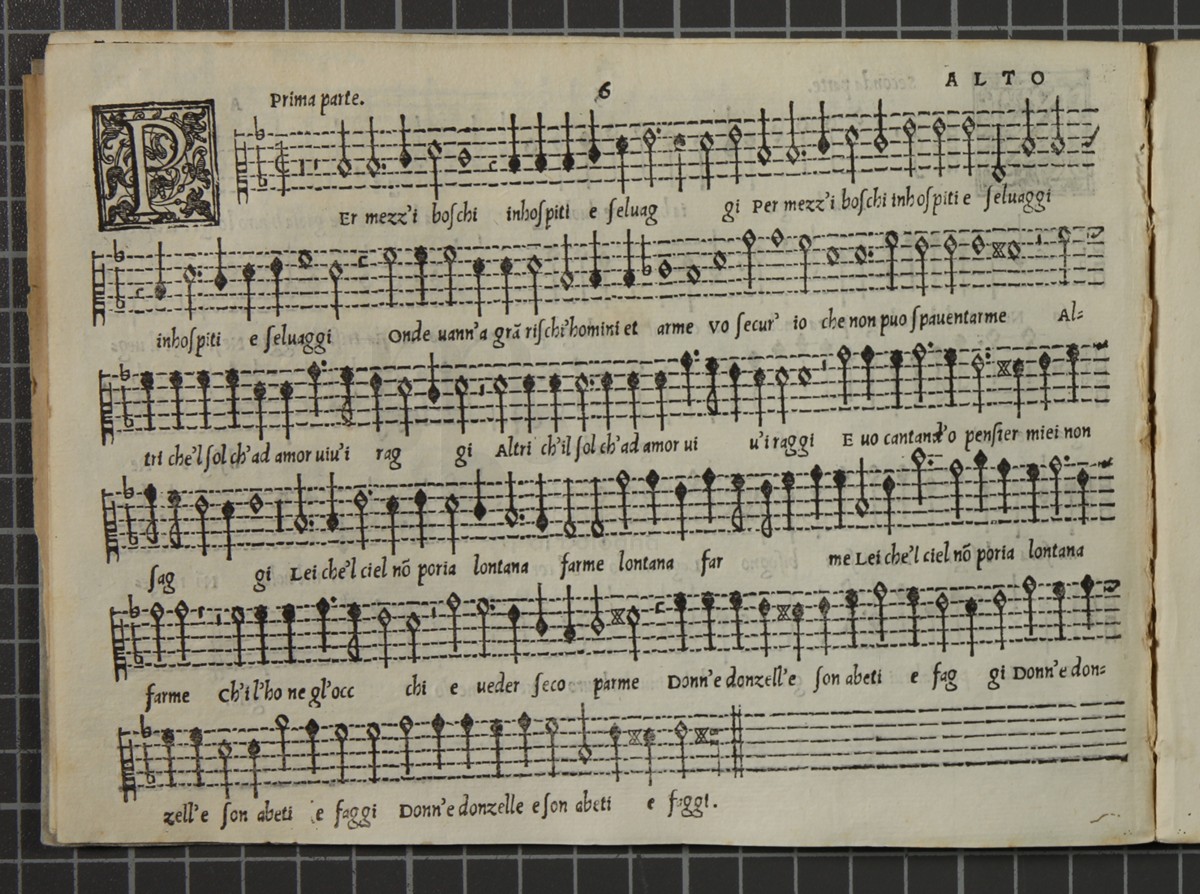 ALTO
6
Prima parte.
PEr mezz'i boſchi inhoſpiti e ſeluag gi Per mezz'i boſchi inhoſpiti e ſeluaggi
inhoſpiti e ſeluaggi Onde uann'a grā riſchi'homini et arme Vo ſecur' io che non puo ſpauentarme Al=
tri che'l ſol ch'ad amor uiu'i rag gi Altri ch'il ſol ch'ad amor ui u'i raggi E uo cantand'o penſier miei non
ſag gi Lei che'l ciel nō poria lontana farme lontana far me Lei che'l ciel nō poria lontana
farme Ch'i l'ho ne gl'occ chi e ueder ſeco parme Donn'e donzell'e ſon abeti e fag gi Donn'e don=
zell'e ſon abeti e faggi Donn'e donzelle e ſon abeti e faggi.